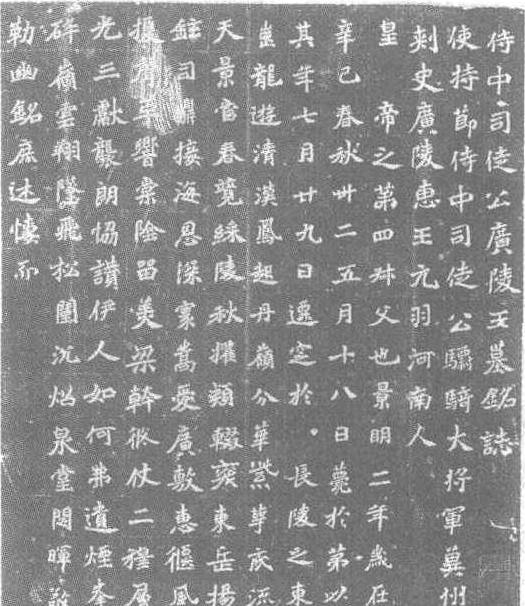 侍中司徒公廣陵王墓銘誌
使持節侍中司徒公驃騎大將軍冀州
刺史廣陵惠王元羽河南人
皇帝之第四叔父也景明二年歲在
辛巳春秋卅二五月十八日薨於第以
其年七月廿九日遷窆於長陵之東
龍遊清漢鳳起丹嶺分華紫萼底流
天景當春競綵陵秋擢穎輟袞東岳揚
鉉司鼎接海恩深寰蒿愛廣敷惠偃風
響棠陰留美梁幹二穆層
光三獻襲朗協讚伊人如何弗遺煙峯
碎嶺雲翔墜飛松闈沉焰泉堂閟暉敬
勒幽銘庶述悽而